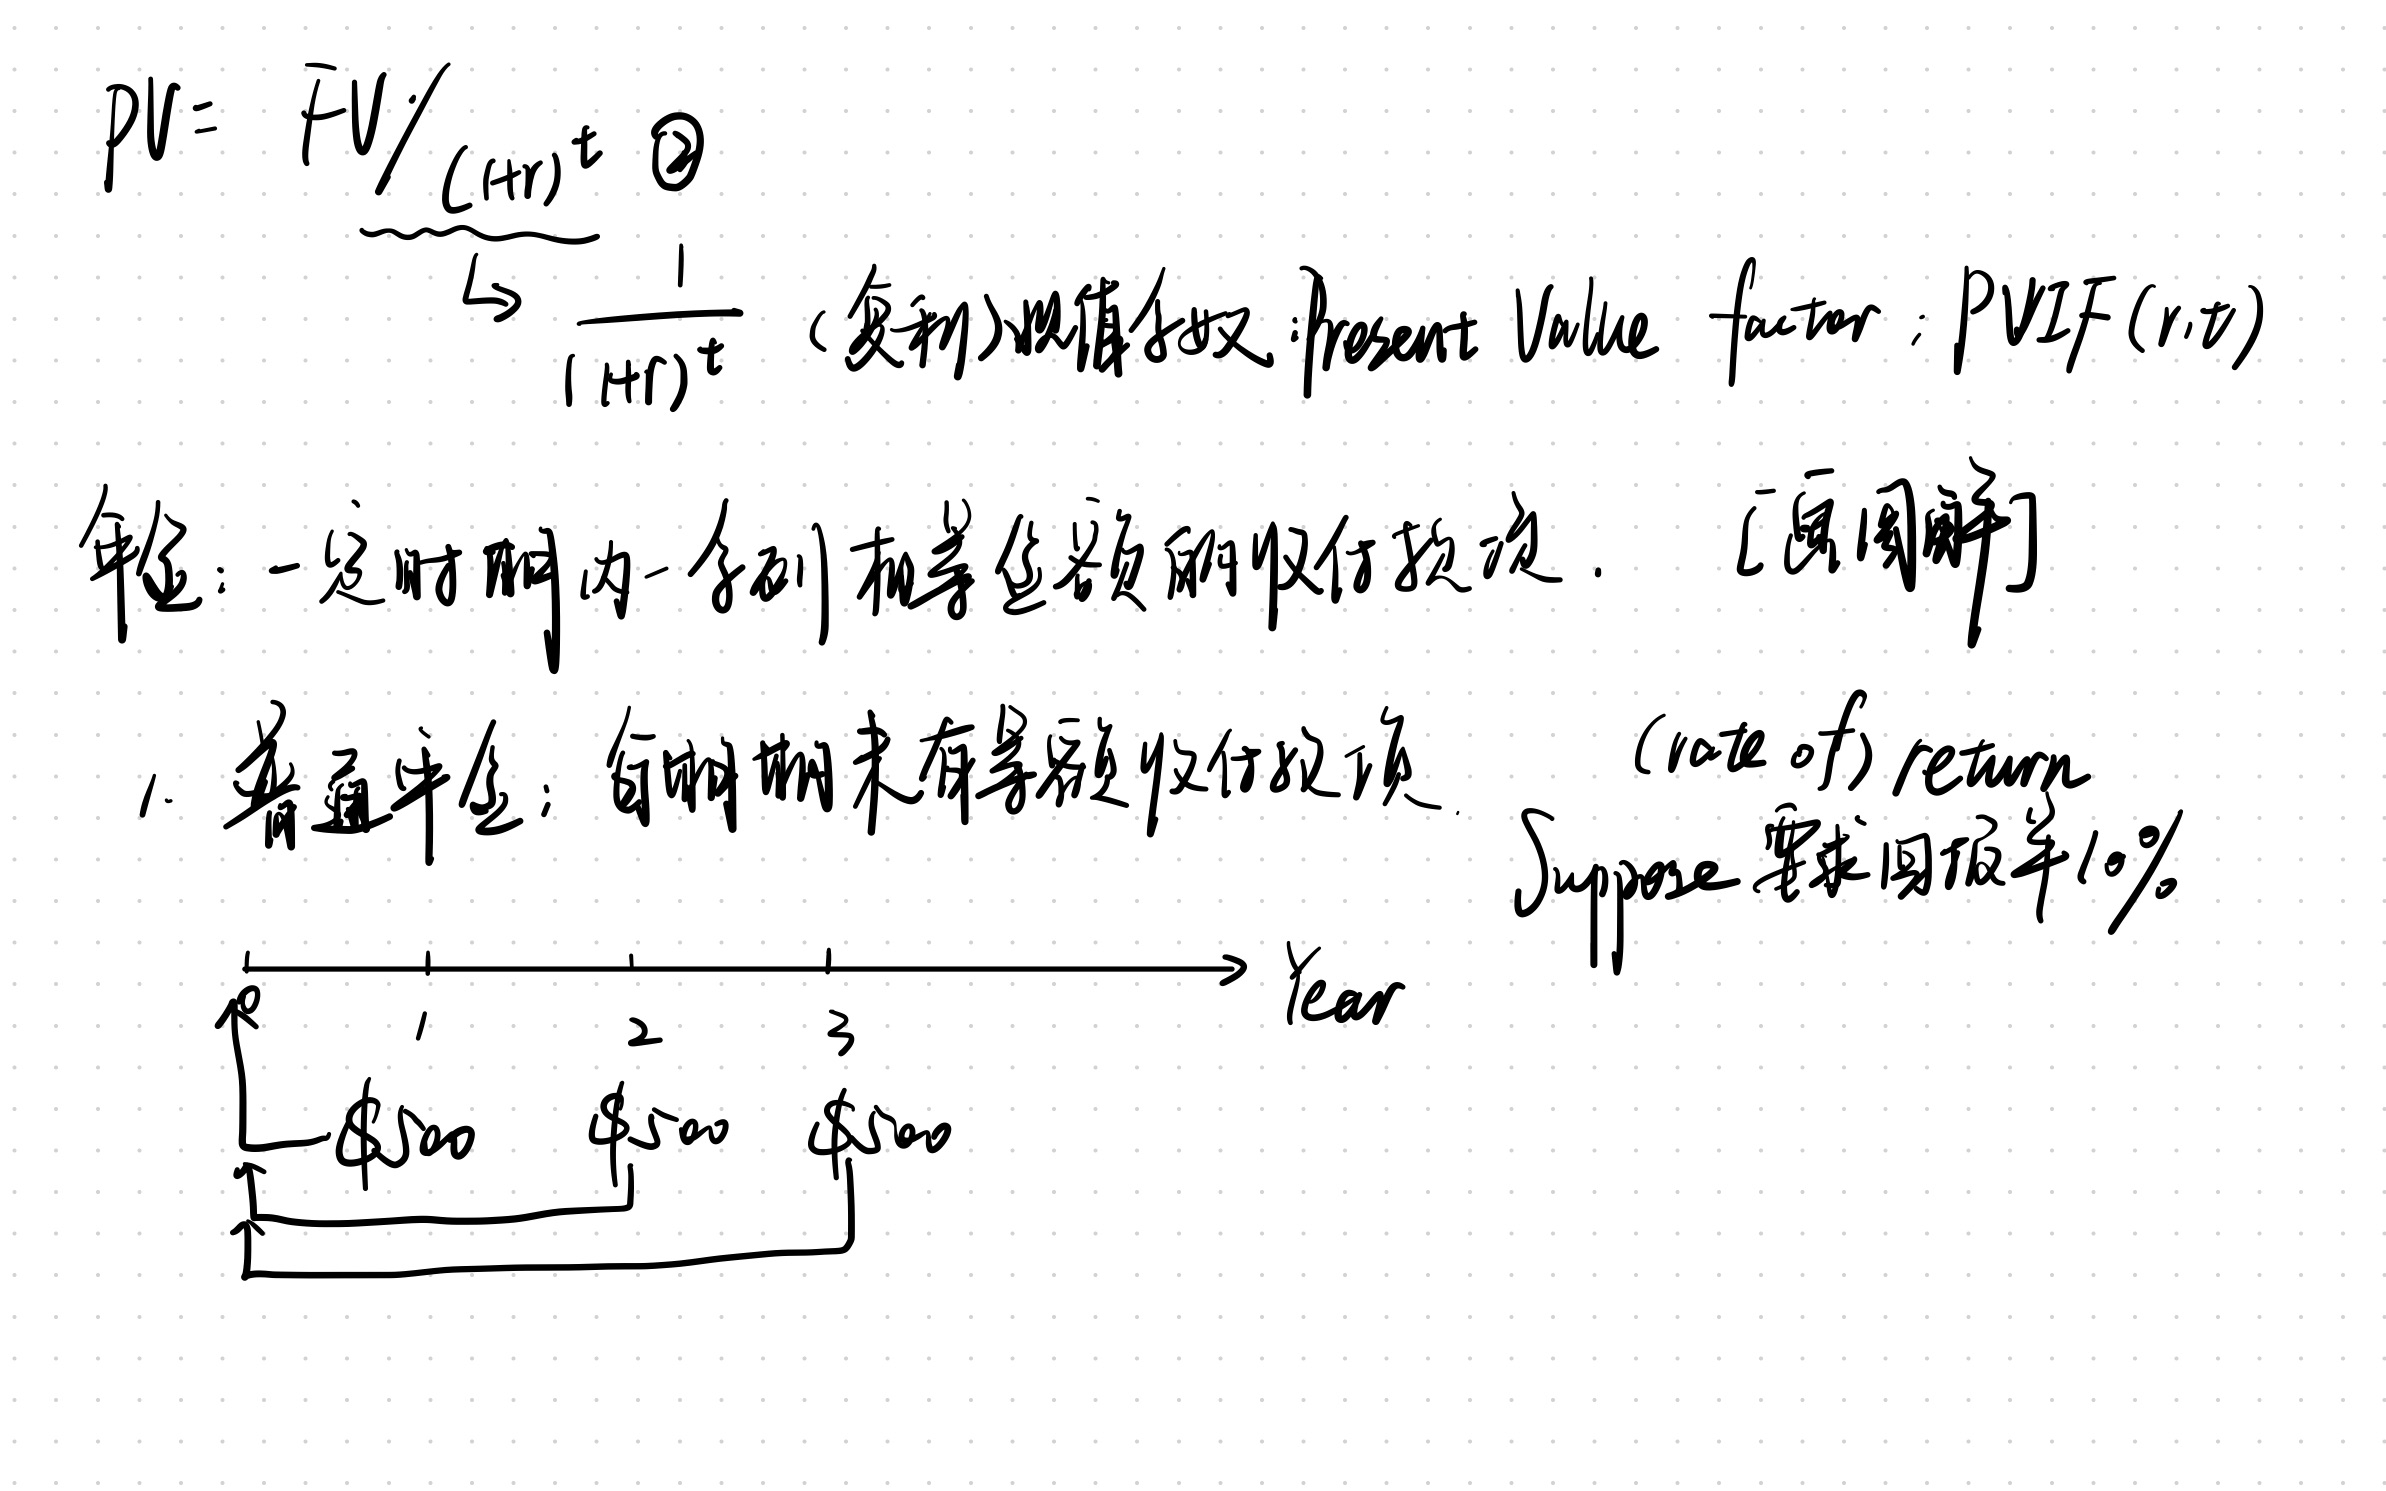 PV = FV/(1+r)^t ②
1/(1+r)^t (复利)现值系数: Present Value factor: PVIF(r,t)
年金: 一定时期内一系列相等金额的收付款项. [画图解]
1. 普通年金: 每期期末有等额收付款项.
(rate of) return
Suppose 要求回报率10%
Year
0 1 2 3
$500 $500 $500